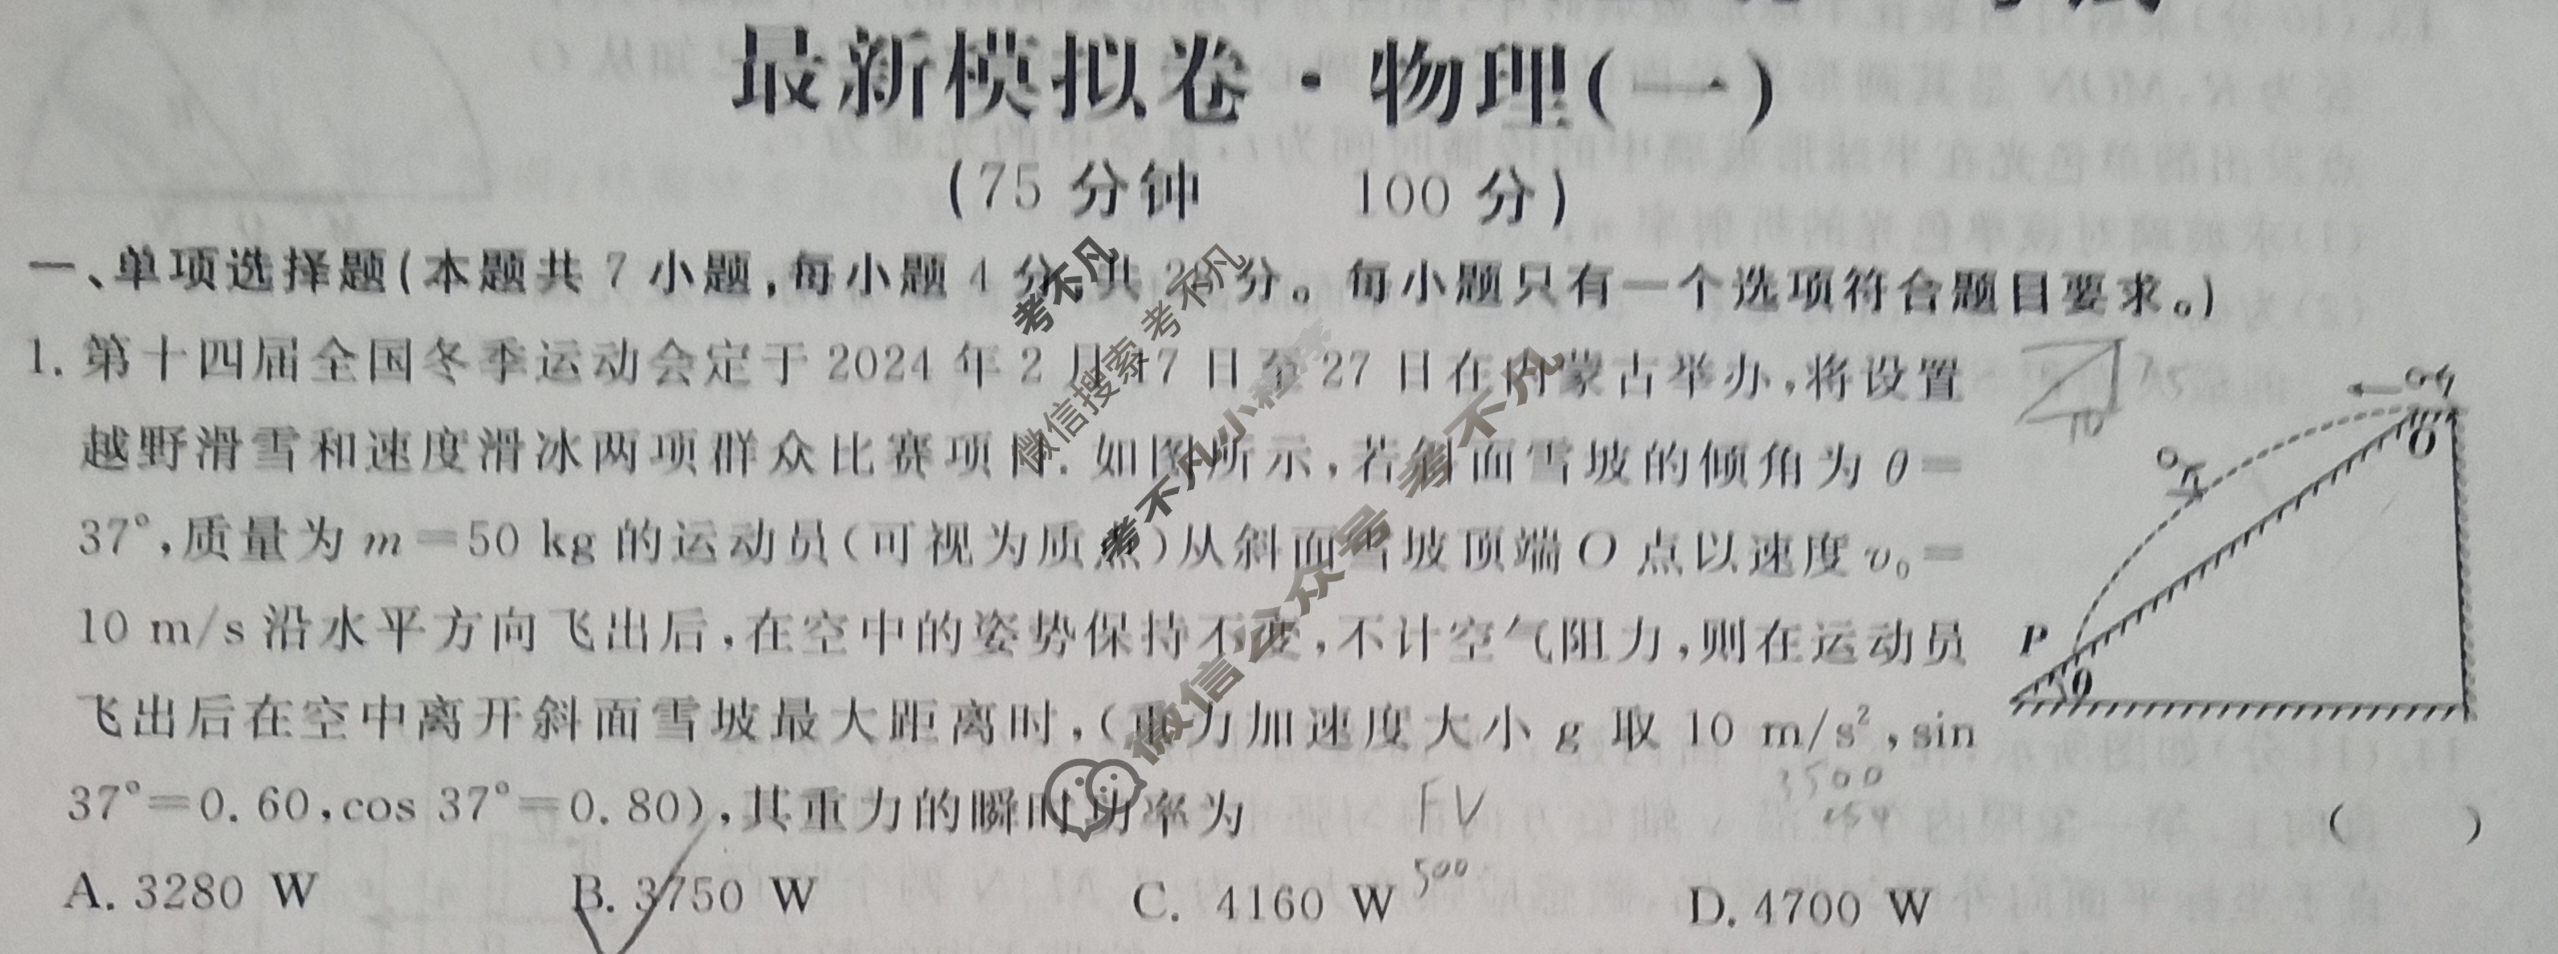 最新模拟卷·物理(一)
(75 分钟 100 分)
一、单项选择题(本题共 7 小题,每小题 4 分,共 28 分。每小题只有一个选项符合题目要求。)
1. 第十四届全国冬季运动会定于 2024 年 2 月 17 日至 27 日在内蒙古举办,将设置
越野滑雪和速度滑冰两项群众比赛项目. 如图所示,若斜面雪坡的倾角为 θ=
37°,质量为 m=50 kg 的运动员(可视为质点)从斜面雪坡顶端 O 点以速度 v₀=
10 m/s 沿水平方向飞出后,在空中的姿势保持不变,不计空气阻力,则在运动员
飞出后在空中离开斜面雪坡最大距离时,(重力加速度大小 g 取 10 m/s²,sin
37°=0.60,cos 37°=0.80),其重力的瞬时功率为 ( )
A. 3280 W B. 3750 W C. 4160 W D. 4700 W
O
P
θ
10
FV
3500
500
考不凡
微信搜索 考不凡
考不凡小程序
微信公众号 考不凡